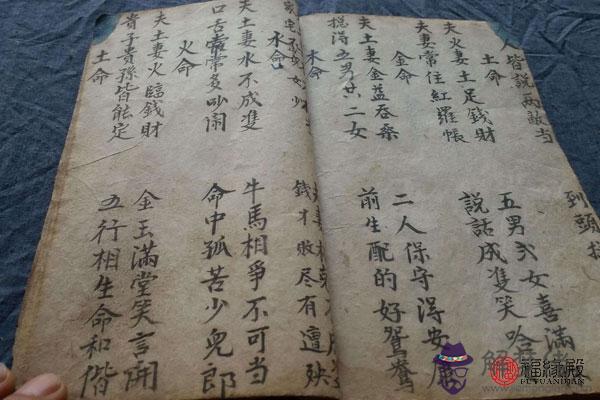 人皆說两敵当 到頭
土命
夫火妻土足錢財 五男弍女喜滿
夫妻常住紅羅帳 説話成雙笑哈
金命
夫土妻金益吞桑 二人保守得安康
捴得五男廿二女 前生配的好鴛鴦
木命
女少 錢才敗尽有遭殃
水命
夫土妻水不成雙 牛馬相爭不可当
口舌常常多吵闹 命中孤苦少兒郎
火命
夫土妻火臨錢財 金玉滿堂笑言開
貴子貴孫皆能定 五行相生命和偕
土命
福緣殿
FUYUANDIAN